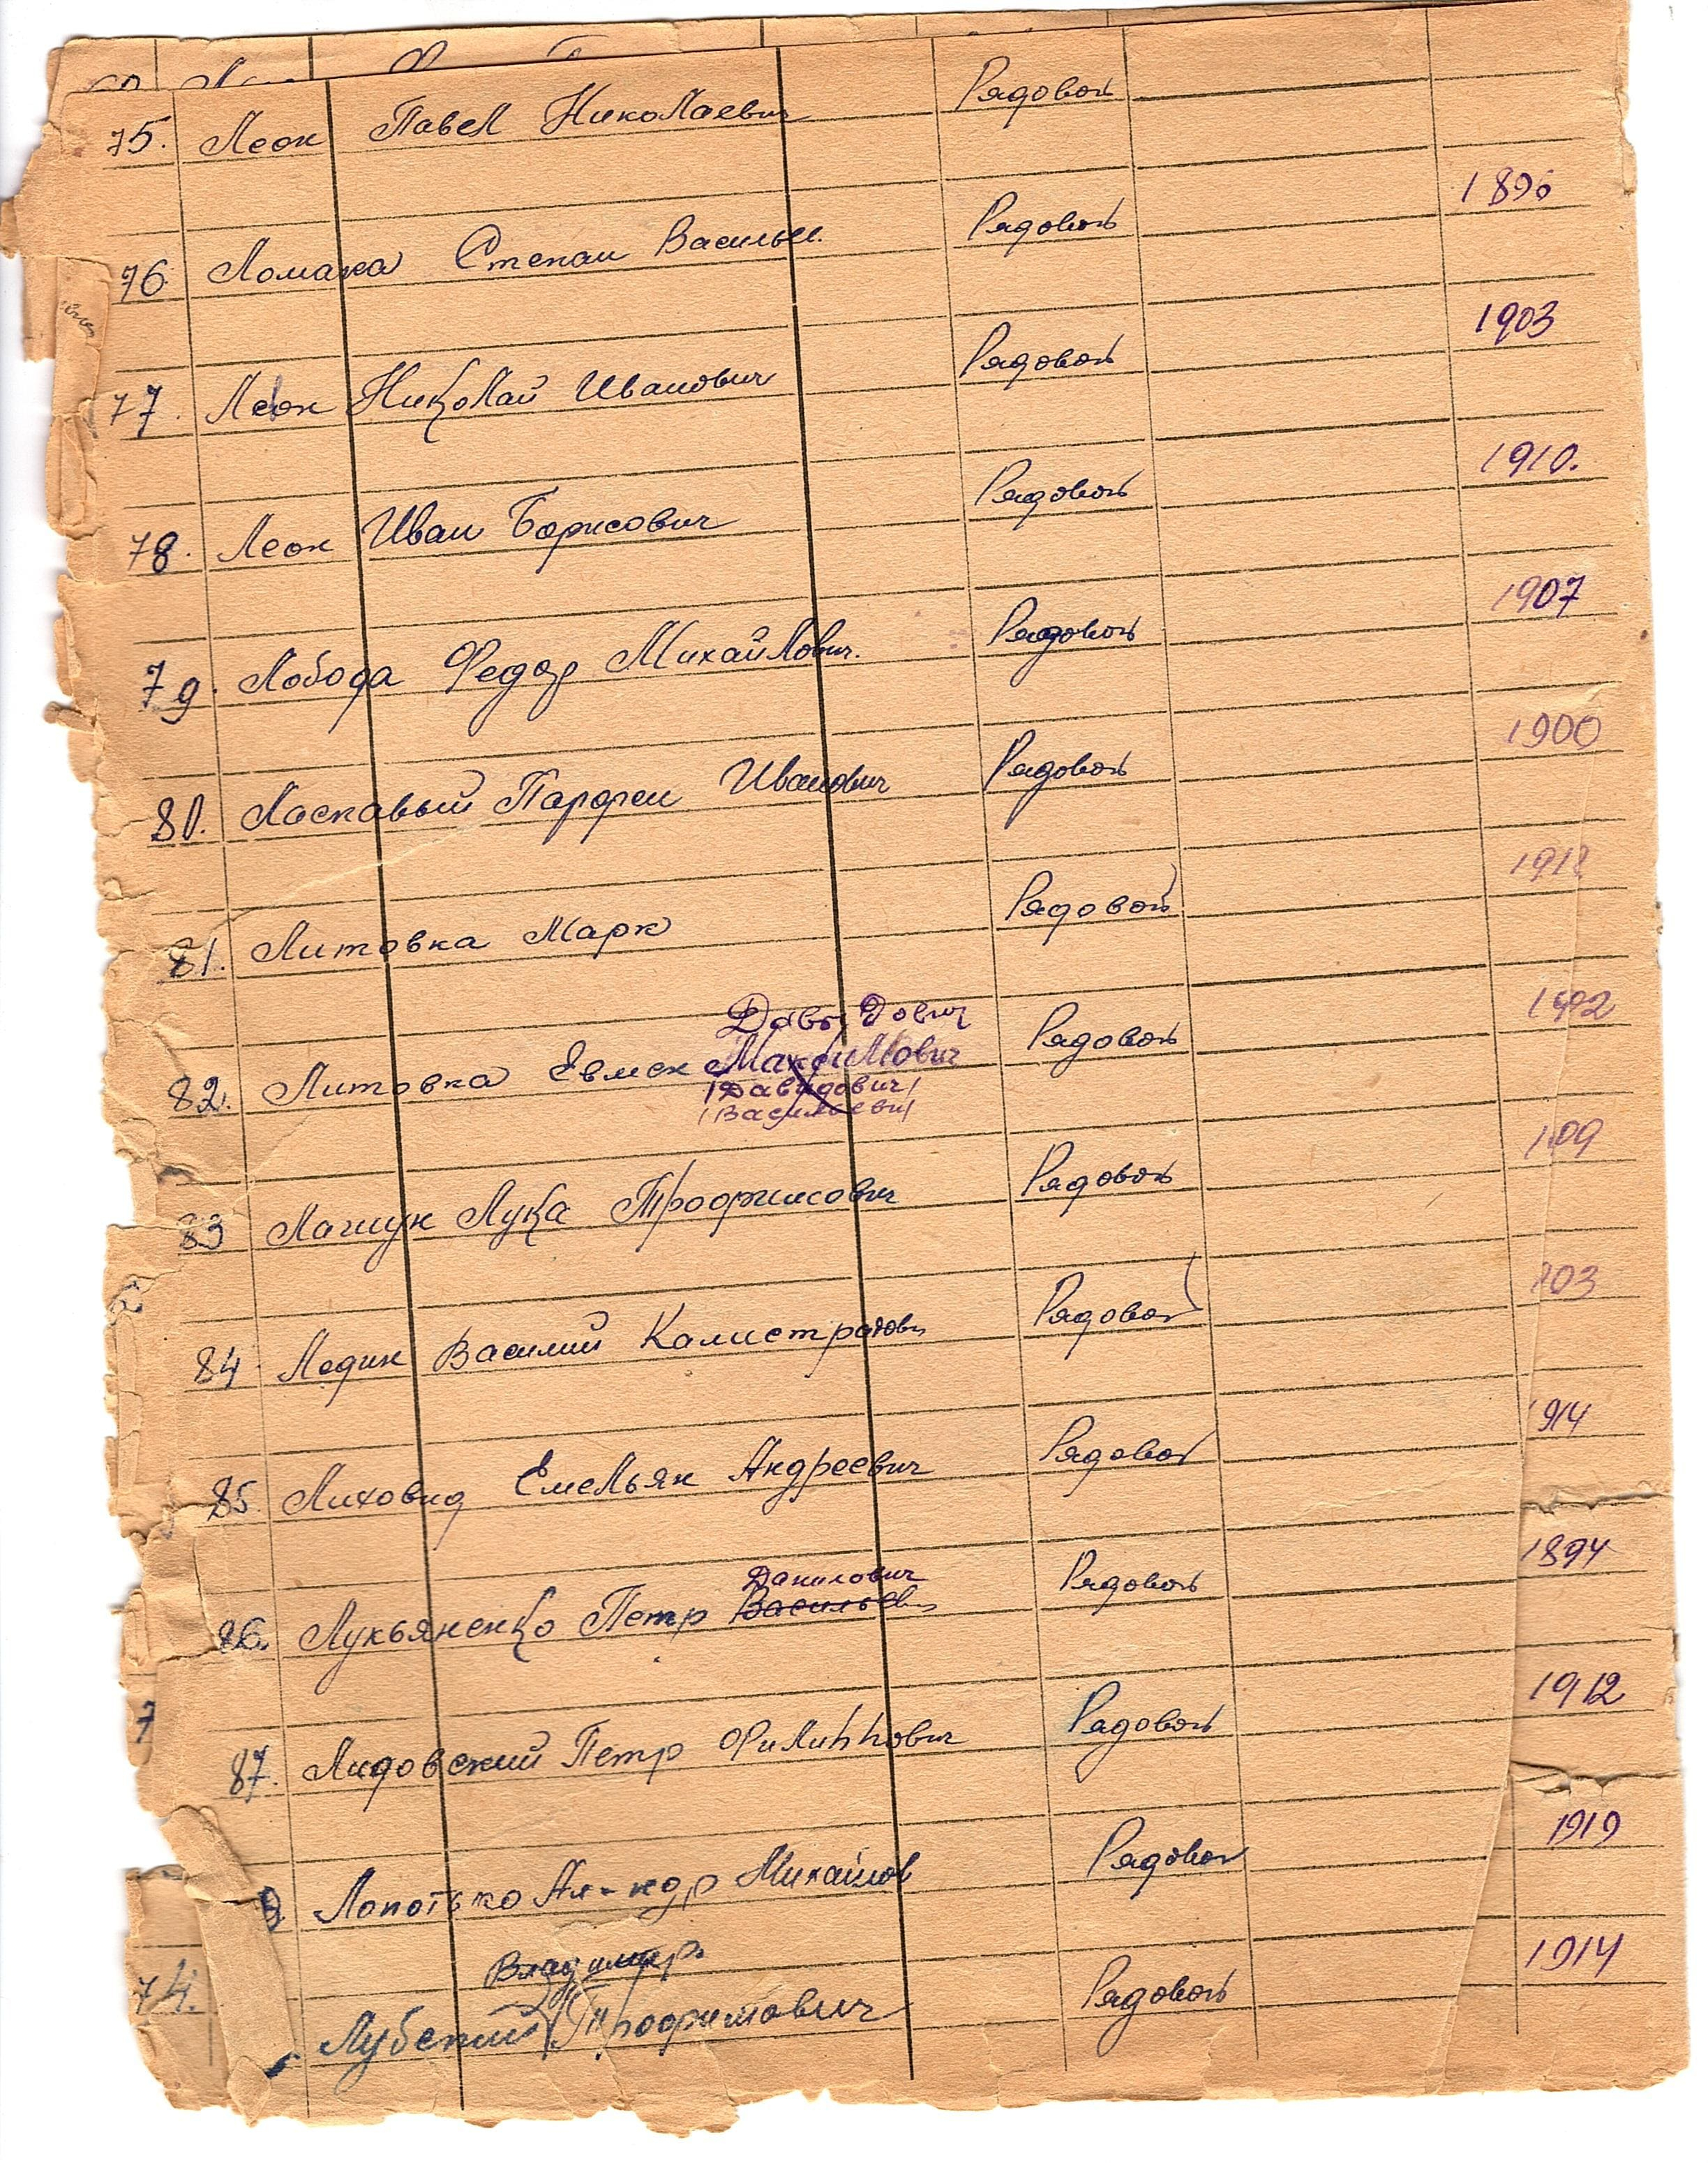 75. Леон Павел Николаевич Рядовой
1896
76. Ломака Степан Василье. Рядовой
1903
77. Леон Николай Иванович Рядовой
1910.
78. Леон Иван Борисович Рядовой
1907
79. Лобода Федор Михайлович. Рядовой
1900
80. Ласкавый Парфен Иванович Рядовой
191
81. Литовка Марк Рядовой
Давыдович
1902
82. Литовка Евмен Максимович Рядовой
/Давидович/
/Васильевич/
09
83 Лащук Лука Трофимович Рядовой
903
84 Ледин Василий Калистратович Рядовой
914
85 Лиховид Емельян Андреевич Рядовой
Данилович
1894
86. Лукьяненко Петр Васильев Рядовой
1912
87. Лидовский Петр Филиппович Рядовой
7
1919
8. Лопотько Ал-ндр Михайлов Рядовой
Владимир
1914
74.
Лубский Трофимович Рядовой